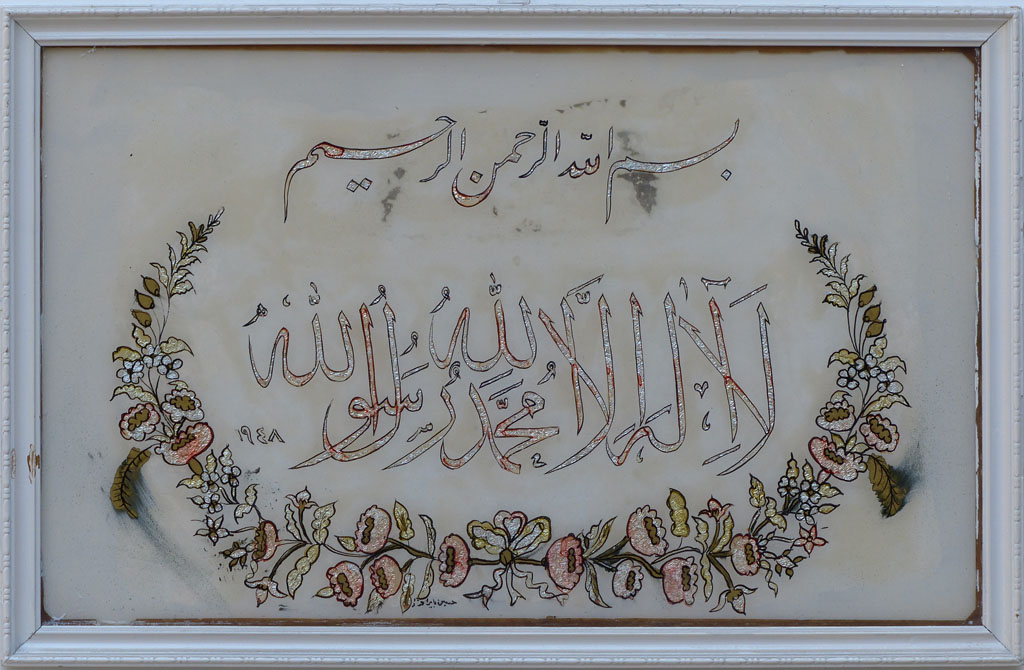 بسم الله الرحمن الرحيم
لا إله إلا الله محمد رسول الله
١٩٤٨